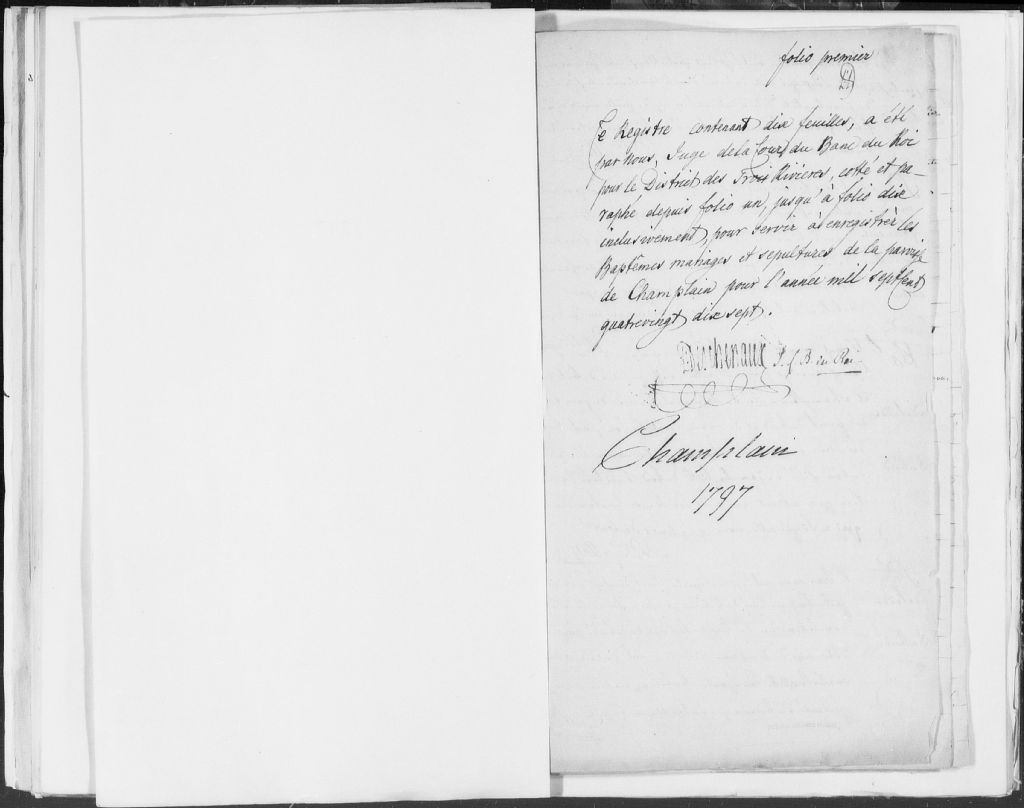 folio premier
Ce Registre contenant dix feuilles, a été
par nous, Juge dela Cour du Banc du Roi
pour le District des Trois Rivieres, cotté et pa-
raphé depuis folio un, jusqu'à folio dix
inclusivement, pour servir à enregistrèr les
Baptêmes mariages et sepultures de la paroisse
de Champlain pour l'année mil sept Cent
quatrevingt dix sept.
Deschenaux J. C B du Roi
Champlain
1797